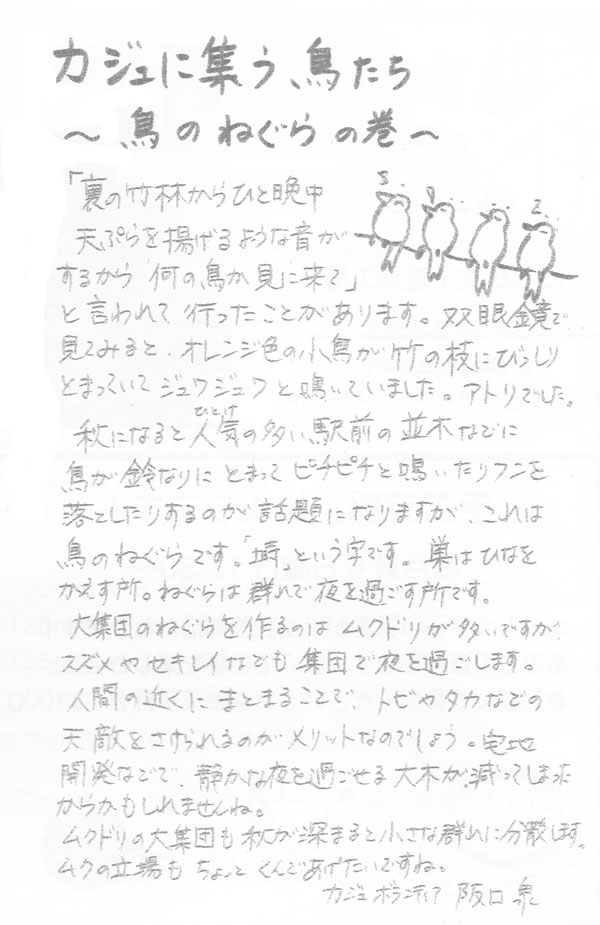 カジュに集う、鳥たち
～鳥のねぐらの巻～
「裏の竹林からひと晩中
天ぷらを揚げるような音が
するから何の鳥か見に来て」
と言われて行ったことがあります。双眼鏡で
見てみると、オレンジ色の小鳥が竹の枝にびっしり
とまっていてジュワジュワと鳴いていました。アトリでした。
秋になると人気の多い駅前の並木などに
ひとけ
鳥が鈴なりにとまってピチピチと鳴いたりフンを
落としたりするのが話題になりますが、これは
鳥のねぐらです。「塒」という字です。巣はひなを
かえす所。ねぐらは群れで夜を過ごす所です。
大集団のねぐらを作るのはムクドリが多いですが、
スズメやセキレイなども集団で夜を過ごします。
人間の近くにまとまることで、トビやタカなどの
天敵をさけられるのがメリットなのでしょう。宅地
開発などで、静かな夜を過ごせる大木が減ってしまった
からかもしれませんね。
ムクドリの大集団も秋が深まると小さな群れに分散します。
ムクの立場もちょっとくんであげたいですね。
カジュボランティア 阪口 泉